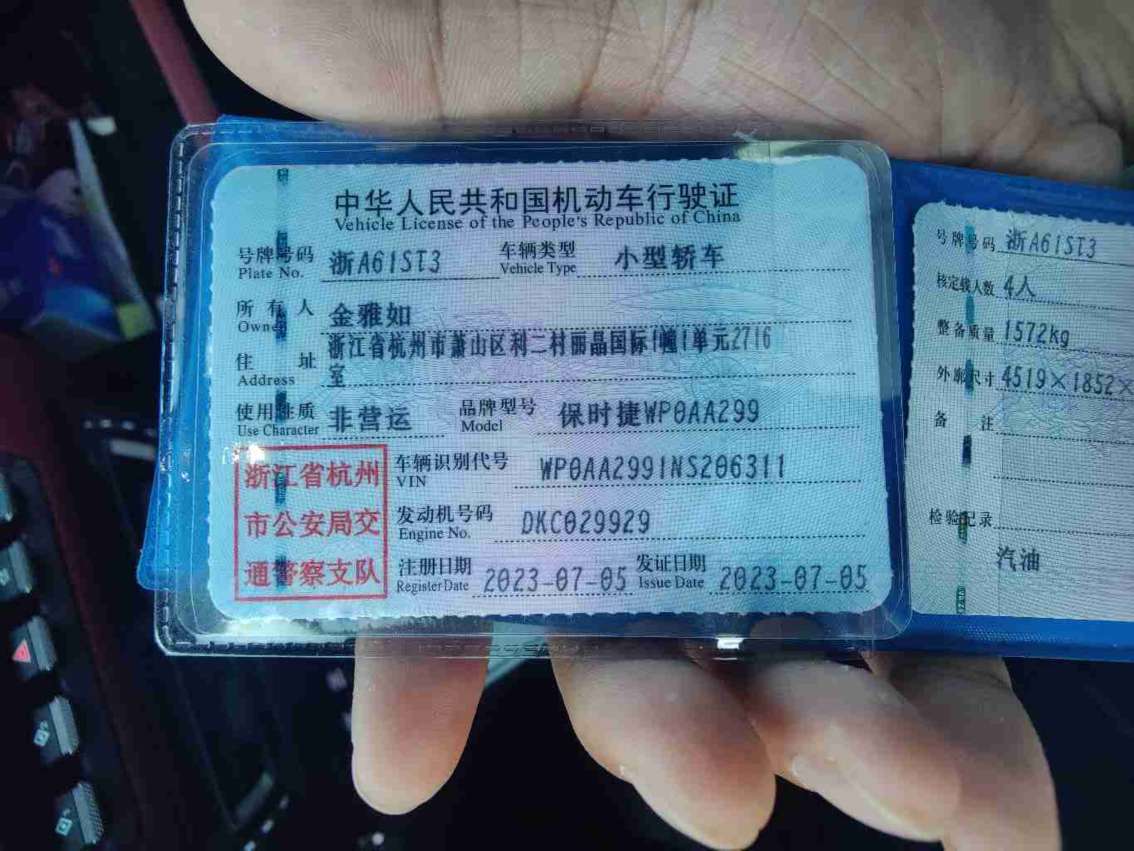 中华人民共和国机动车行驶证
Vehicle License of the People's Republic of China
号牌号码 浙A61ST3 车辆类型 小型轿车
Plate No. Vehicle Type
所有人 金雅如
Owner
住址 浙江省杭州市萧山区利二村丽晶国际1幢1单元2716
室
Address
使用性质 非营运 品牌型号 保时捷WP0AA299
Use Character Model
车辆识别代号 WP0AA2991NS206311
VIN
发动机号码 DKC029929
Engine No.
注册日期 2023-07-05 发证日期 2023-07-05
Register Date Issue Date
浙江省杭州
市公安局交
通警察支队
号牌号码 浙A61ST3
核定载人数 4人
整备质量 1572kg
外廓尺寸 4519×1852×
备注
检验记录
汽油